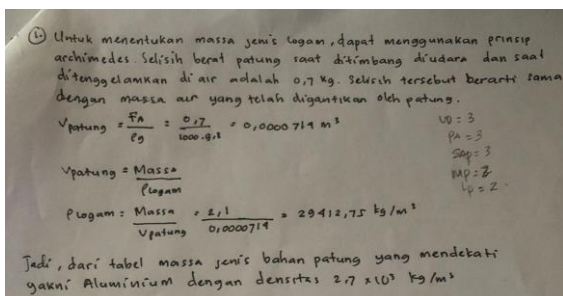 1. Untuk menentukan massa jenis logam, dapat menggunakan prinsip
archimedes. Selisih berat patung saat ditimbang diudara dan saat
ditenggelamkan di air adalah 0,7 kg. Selisih tersebut berarti sama
dengan massa air yang telah digantikan oleh patung.
V patung = FA / ρg = 0,7 / 1000.9,8 = 0,0000714 m³
UD = 3
PA = 3
SAp = 3
MP = 2
LP = 2
V patung = Massa / ρ logam
ρ logam = Massa / V patung = 2,1 / 0,0000714 = 29412,75 kg/m³
Jadi, dari tabel massa jenis bahan patung yang mendekati
yakni Aluminium dengan densitas 2,7 x10³ kg/m³